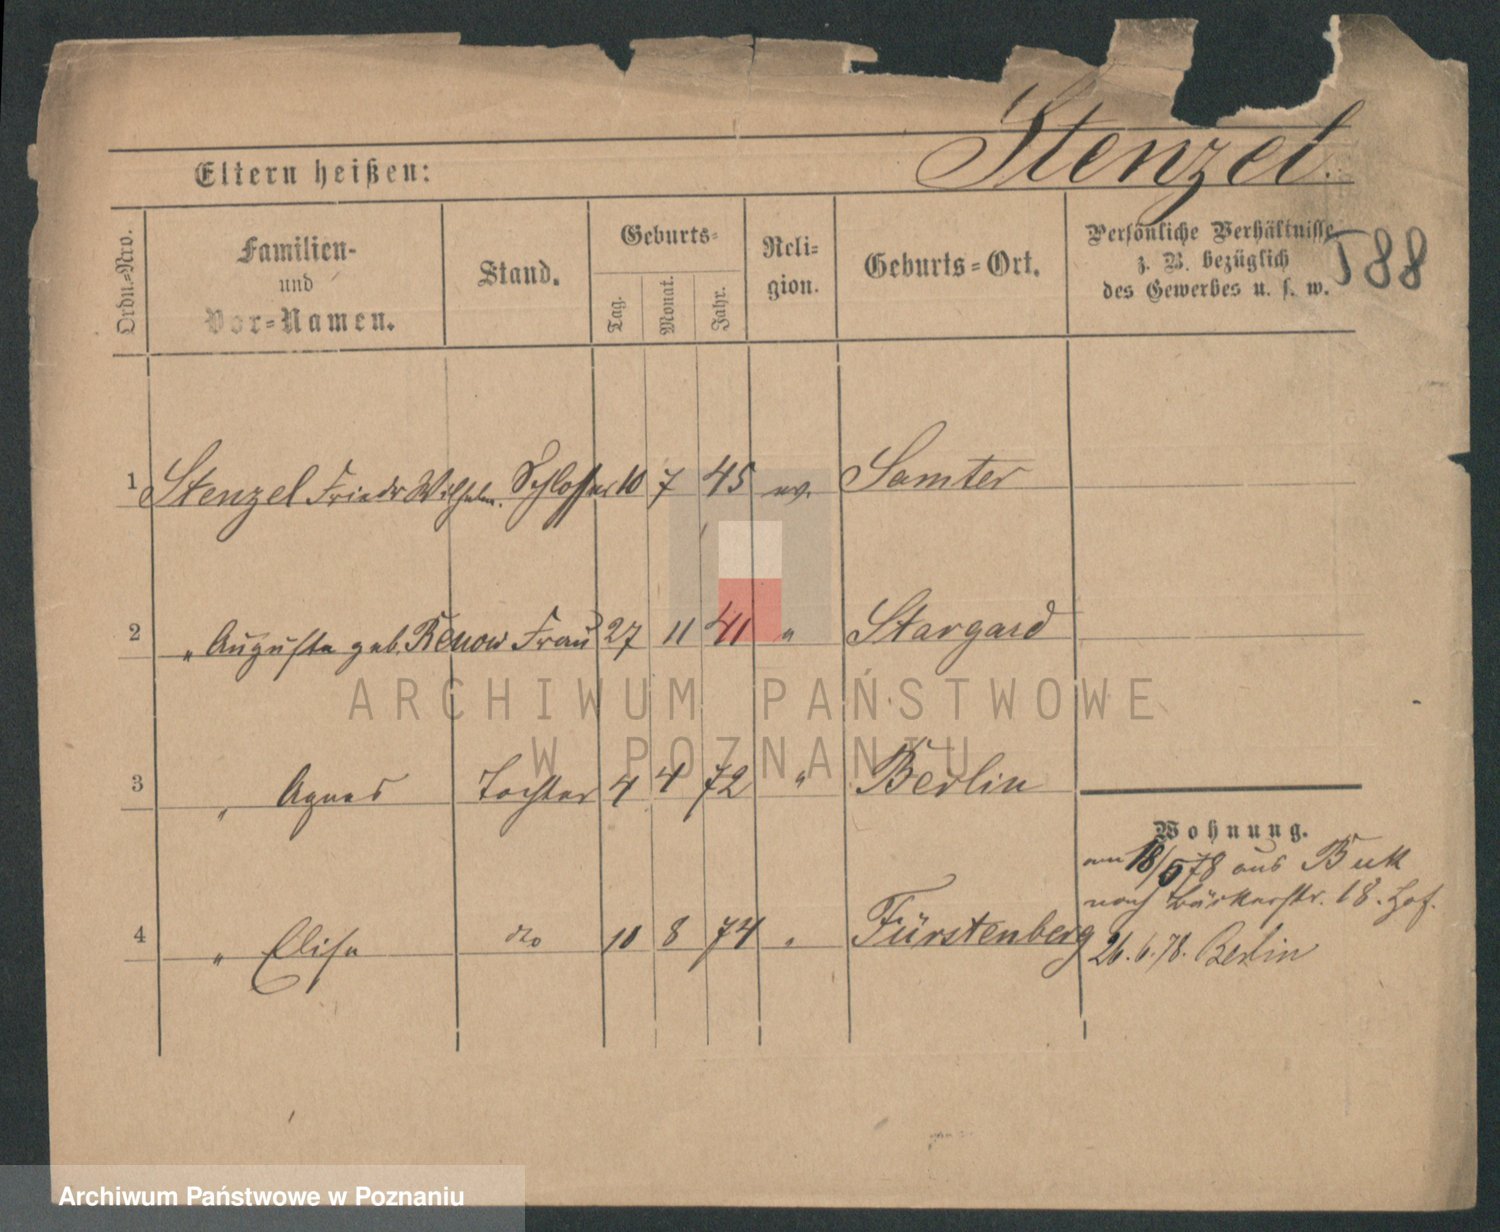 Stenzel.
Eltern heißen:
588
Ordn.-Nro.
Familien-
und
Vor-Namen.
Stand.
Geburts-
Tag.
Monat.
Jahr.
Reli-
gion.
Geburts-Ort.
Persönliche Verhältnisse
z. B. bezüglich
des Gewerbes u. s. w.
1 Stenzel Friedr Wilhelm. Schlosser 10 7 45 ev. Samter
2 " Auguste geb. Renow Frau 27 11 41 " Stargard
ARCHIWUM PAŃSTWOWE
W POZNANIU
3 " Agnes Tochter 4 4 72 " Berlin
Wohnung.
am 18/5 78 aus Buk
nach Bäckerstr. 18. Hof.
4 " Elise do 10 8 74 " Fürstenberg
26.6.78. Berlin
Archiwum Państwowe w Poznaniu